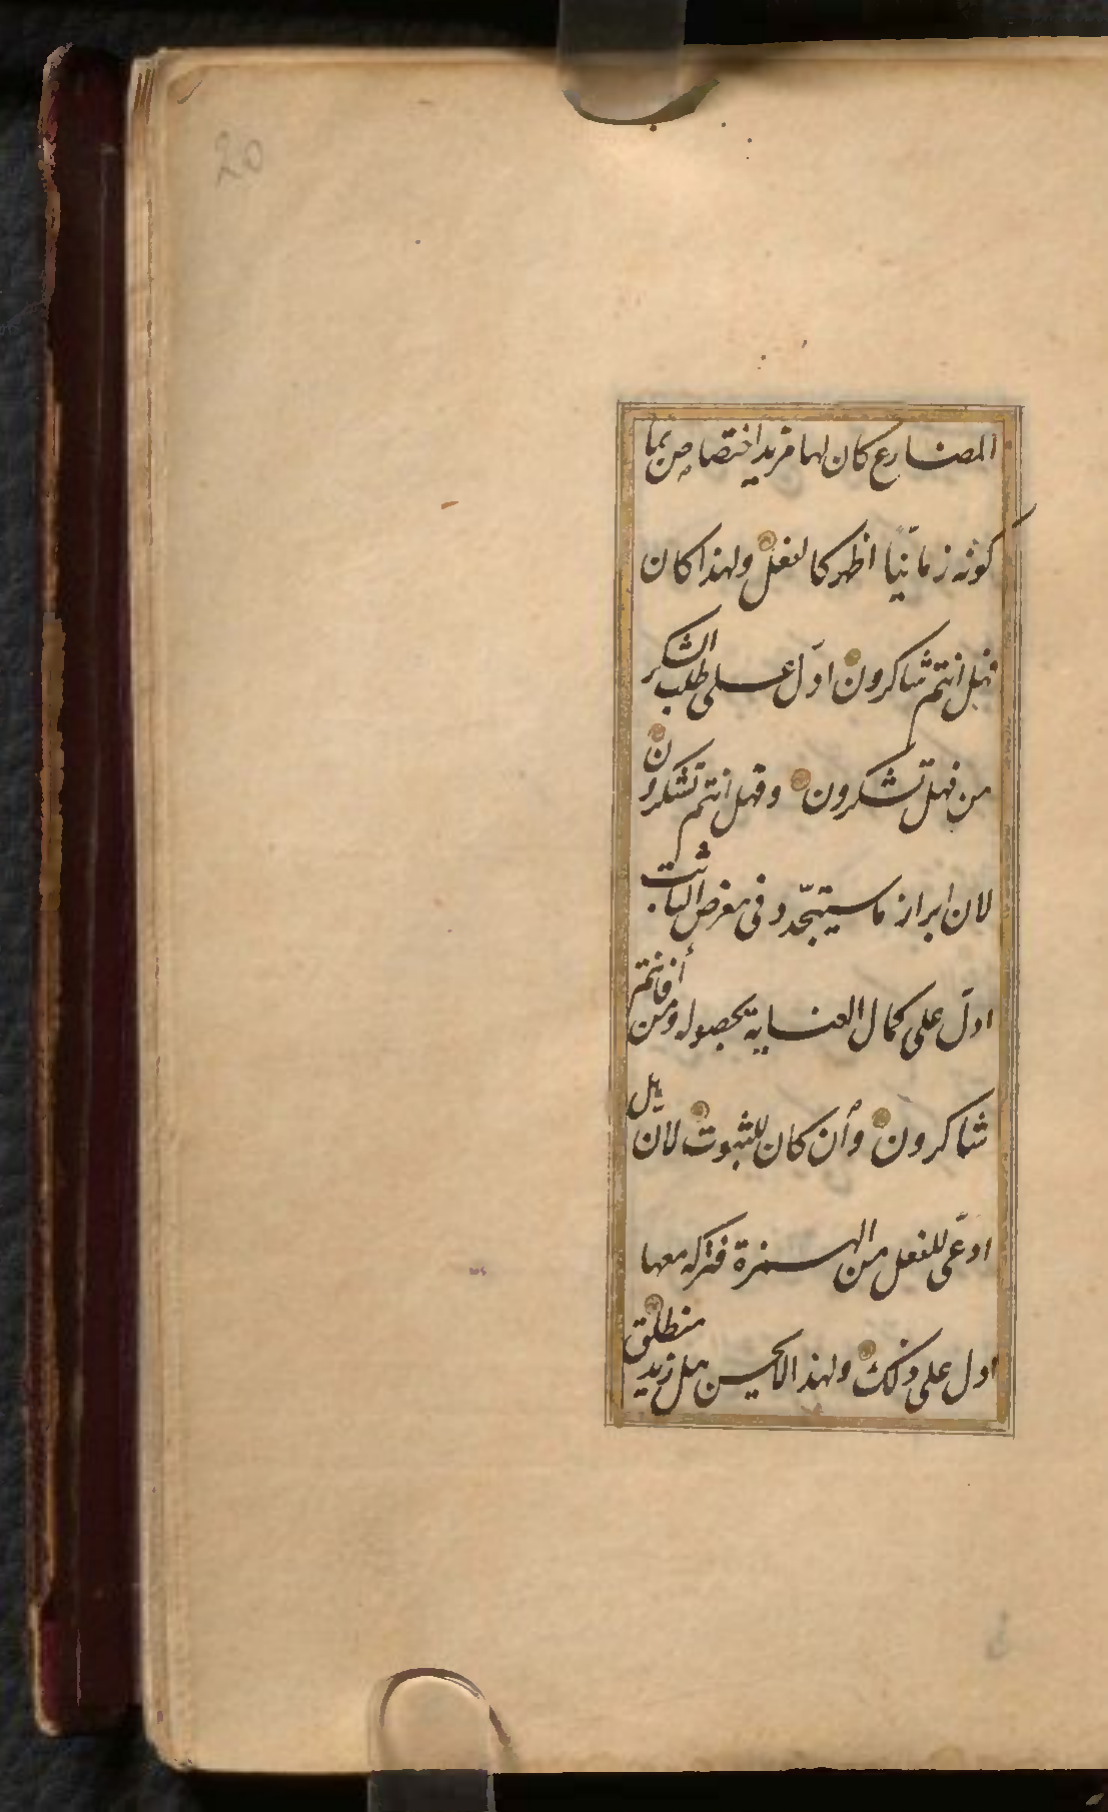 20
المضارع كان لها مزيد اختصاص بما
كونه زمانيّا اظهر كالفعل ولهذا كان
فهل انتم شاكرون ادلّ على طلب الشكر
من فهل تشكرون وفهل انتم تشكرون
لان ابراز ما سيتجّدد فى معرض الثابت
ادلّ على كمال العناية بحصوله ومن أفانتم
شاكرون وأن كان للثبوت لان هل
ادعى للفعل من الهمزة فتركه معها
ادل على ذلك ولهذا لا يحسن هل زيد منطلق